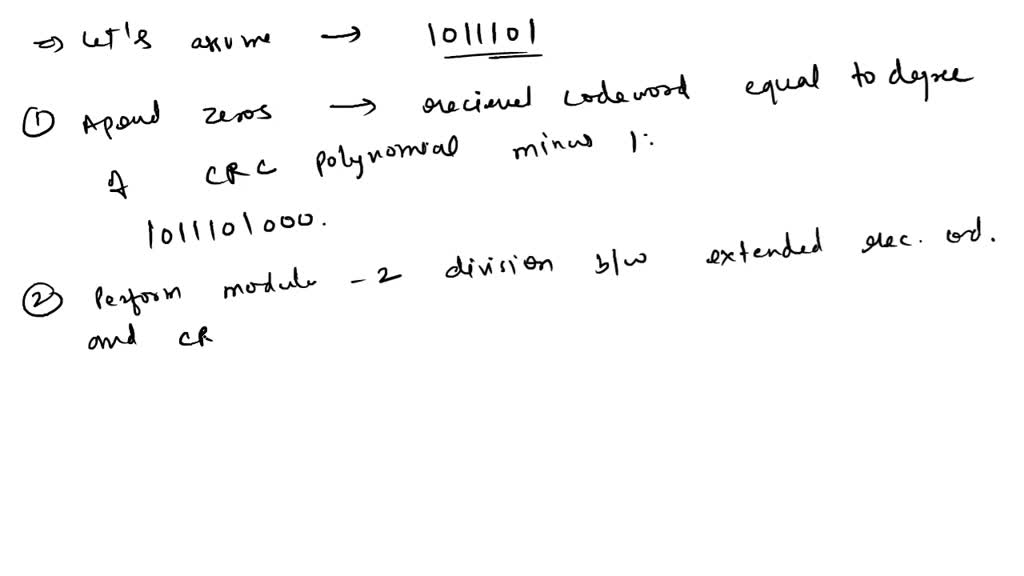 ⇒ Let's assume → 1011101
① Apend zeros → recieved codeword equal to degree
of CRC polynomial minus 1:
1011101000.
② Perform modulo - 2 division b/w extended rec. cod.
and CR